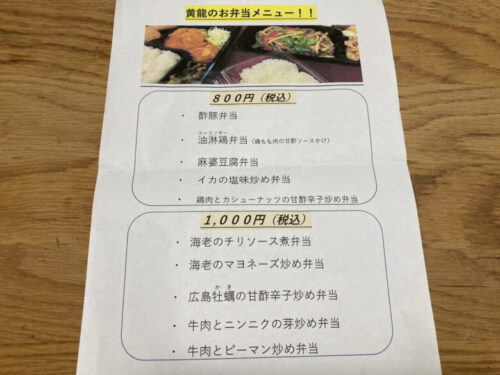 黄龍のお弁当メニュー！！
800円（税込）
・ 酢豚弁当
ユーリンチー
・ 油淋鶏弁当（鶏もも肉の甘酢ソースかけ）
・ 麻婆豆腐弁当
・ イカの塩味炒め弁当
・ 鶏肉とカシューナッツの甘酢辛子炒め弁当
1,000円（税込）
・ 海老のチリソース煮弁当
・ 海老のマヨネーズ炒め弁当
かき
・ 広島牡蠣の甘酢辛子炒め弁当
・ 牛肉とニンニクの芽炒め弁当
・ 牛肉とピーマン炒め弁当